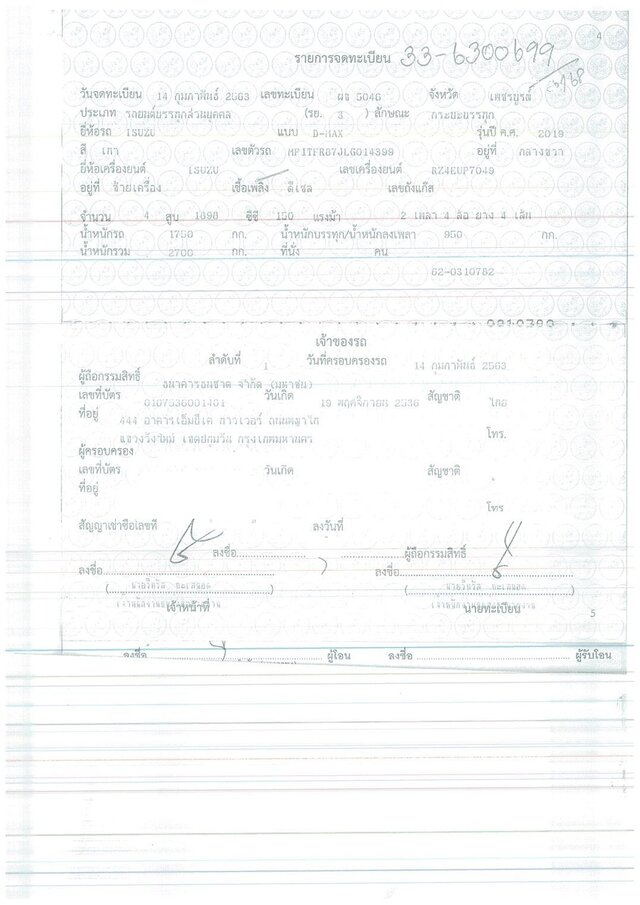 4
รายการจดทะเบียน 33-6300699
วันจดทะเบียน 14 กุมภาพันธ์ 2563 เลขทะเบียน ผธ 5046 จังหวัด เพชรบูรณ์
ประเภท รถยนต์บรรทุกส่วนบุคคล (รย. 3 ) ลักษณะ กระบะบรรทุก
ยี่ห้อรถ ISUZU แบบ D-MAX รุ่นปี ค.ศ. 2019
สี เทา เลขตัวรถ MP1TFR87JLG014399 อยู่ที่ กลางขวา
ยี่ห้อเครื่องยนต์ ISUZU เลขเครื่องยนต์ RZ4EUP7049
อยู่ที่ ซ้ายเครื่อง เชื้อเพลิง ดีเซล เลขถังแก๊ส
จำนวน 4 สูบ 1898 ซีซี 150 แรงม้า 2 เพลา 4 ล้อ ยาง 4 เส้น
น้ำหนักรถ 1750 กก. น้ำหนักบรรทุก/น้ำหนักลงเพลา 950 กก.
น้ำหนักรวม 2700 กก. ที่นั่ง คน
62-0310782
เจ้าของรถ
ลำดับที่ 1 วันที่ครอบครองรถ 14 กุมภาพันธ์ 2563
ผู้ถือกรรมสิทธิ์ ธนาคารธนชาต จำกัด (มหาชน)
เลขที่บัตร 0107536001401 วันเกิด 19 พฤศจิกายน 2536 สัญชาติ ไทย
ที่อยู่ 444 อาคารเอ็มบีเค ทาวเวอร์ ถนนพญาไท
แขวงวังใหม่ เขตปทุมวัน กรุงเทพมหานคร โทร.
ผู้ครอบครอง
เลขที่บัตร วันเกิด สัญชาติ
ที่อยู่
โทร
สัญญาเช่าซื้อเลขที่ ลงวันที่
ลงชื่อ ผู้ถือกรรมสิทธิ์
ลงชื่อ ลงชื่อ
เจ้าหน้าที่ นายทะเบียน
5
ลงชื่อ ผู้โอน ลงชื่อ ผู้รับโอน